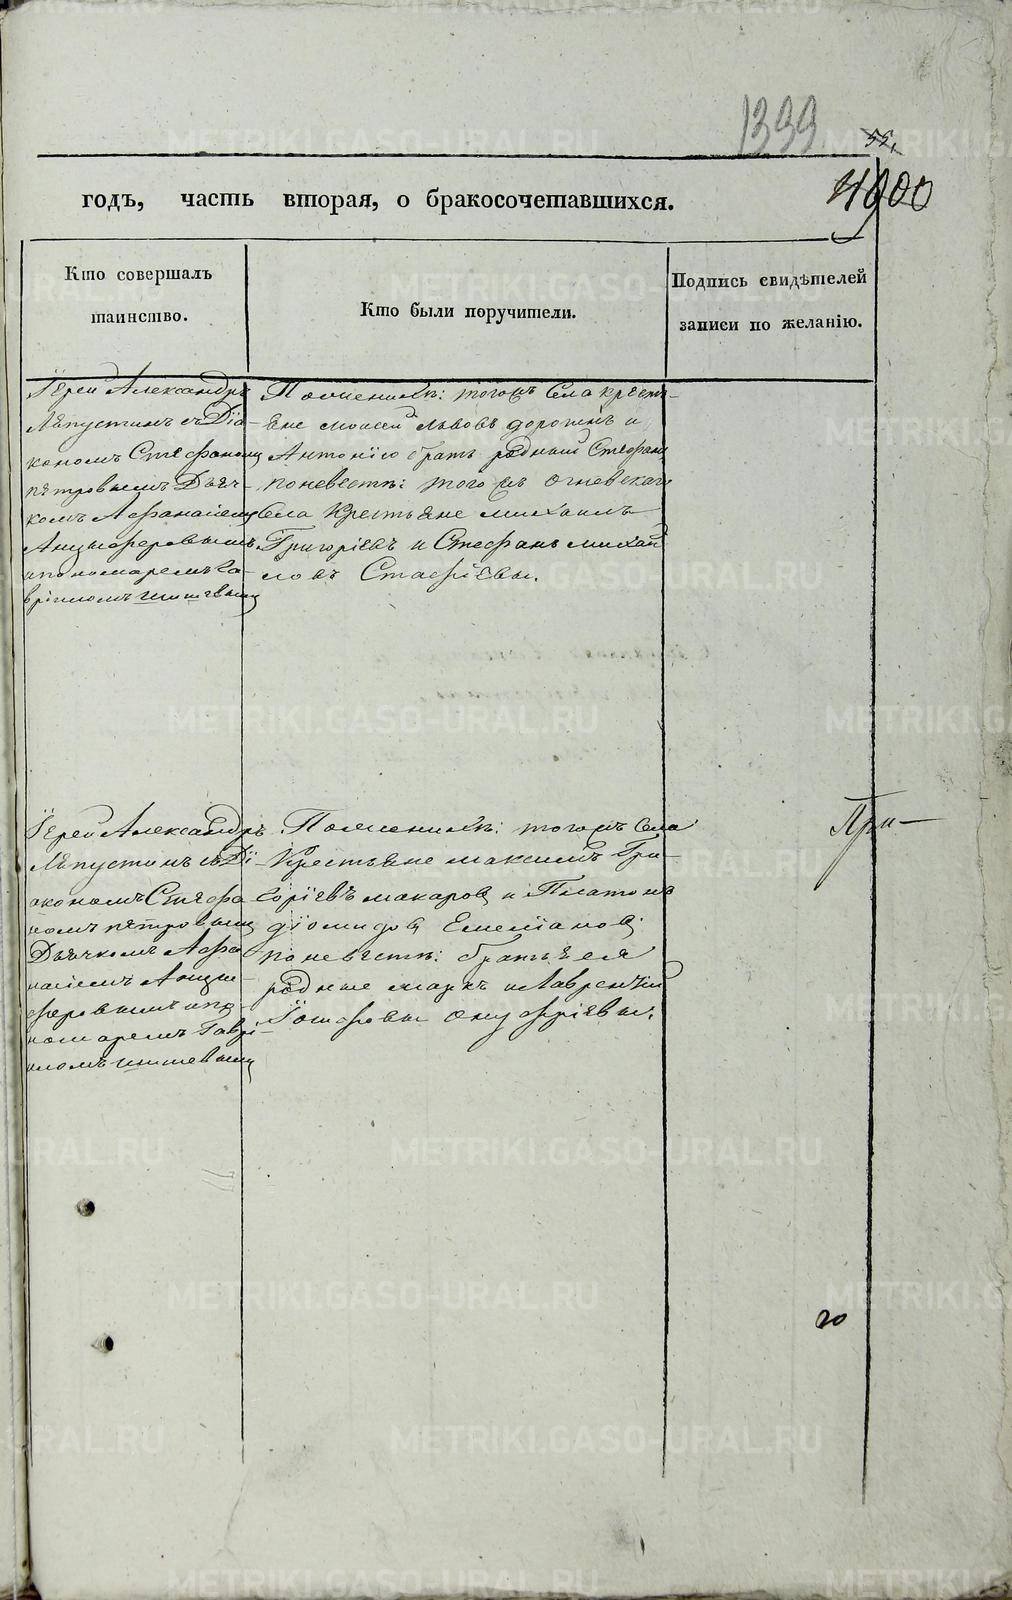 1399
55,
годъ, часть вторая, о бракосочетавшихся.
Кто совершалъ
таинство.
Кто были поручители.
Подпись свидѣтелей
записи по желанію.
Іерей Александръ
Лѣпустинъ съ Діа-
кономъ Стефаномъ
петровымъ Дьяч-
комъ Афанасіемъ
Анцыферовымъ
и пономаремъ Га-
вріиломъ
По женихѣ: того жъ Села крестъ-
яне Моисей Львовъ и
Антонію братъ родный Стефанъ
по невестѣ: того жъ Огневскаго
Села Крестьяне михаилъ
Григоріевъ и Стефанъ михай
ловъ Стафѣевы.
Іерей Александръ
Лѣпустинъ съ Ді-
акономъ Стефа
номъ петровымъ
Дьячкомъ Афа
насіемъ Анцы
феровымъ и по-
номаремъ Гаврі-
иломъ
По женихѣ: того жъ Села
Крестьяне максимъ Гри-
горіевъ макаровъ и Платонъ
діомидовъ Емеліановъ
по невестѣ: братья ея
родные маркъ и Лаврентій
Іосифовы Онуфріевы.
При-
20
METRIKI.GASO-URAL.RU